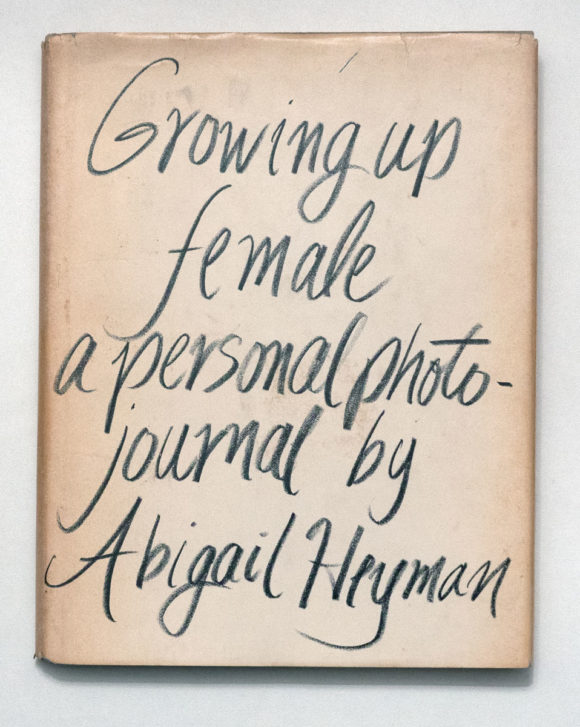 Growing up
female
a personal photo-
journal by
Abigail Heyman